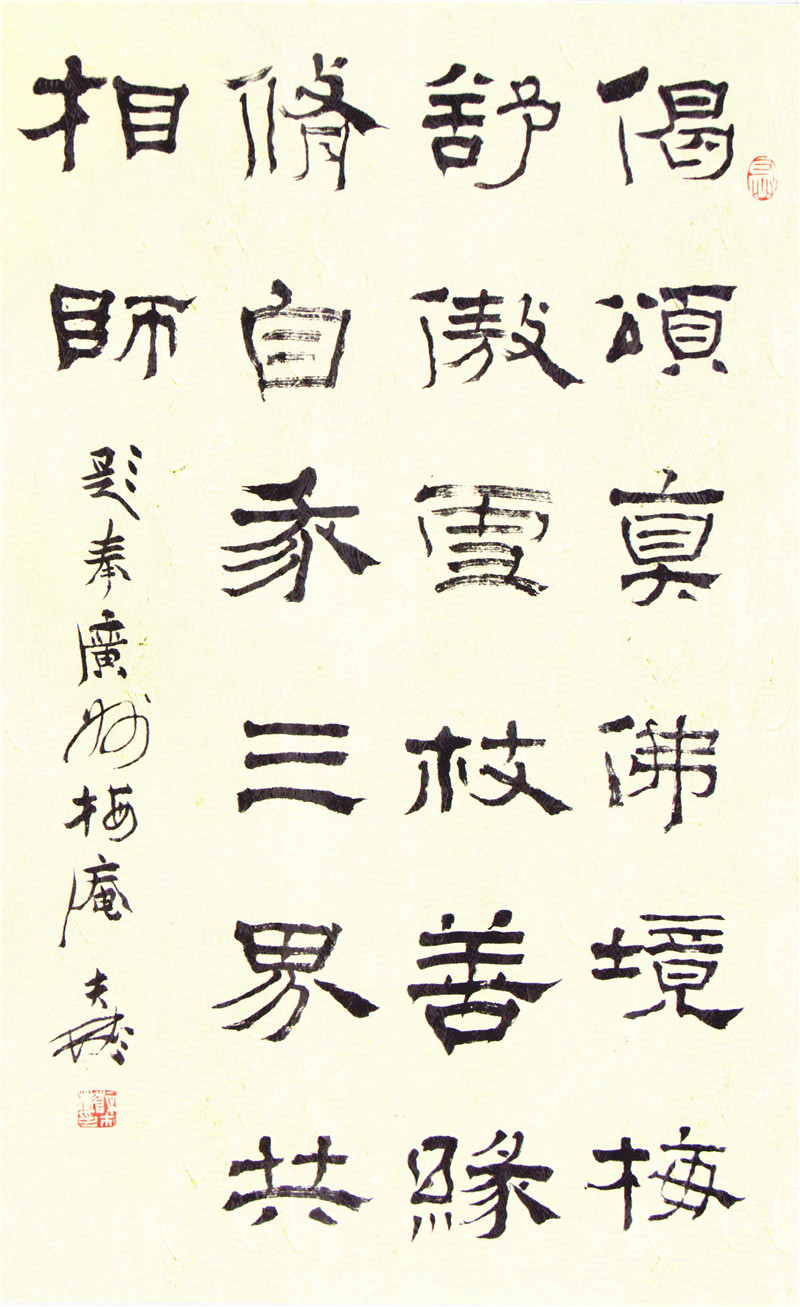 偈頌真佛境梅
舒傲雪枝善緣
脩自豪三界共
相師
題奉廣州梅庵